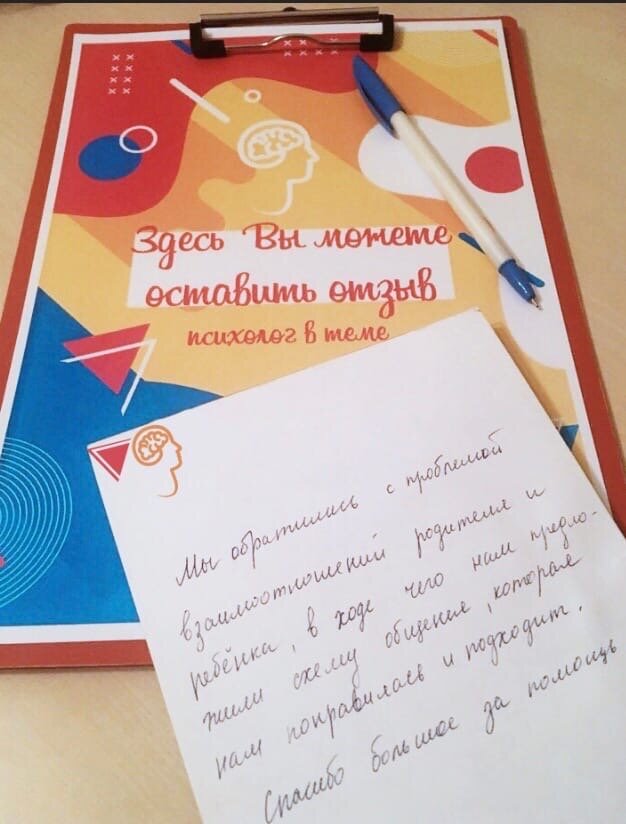 Здесь Вы можете
оставить отзыв
психолог в теме
Мы обратились с проблемой
взаимоотношений родителя и
ребёнка, в ходе чего нам предло-
жили схему общения, которая
нам понравилась и подходит.
Спасибо большое за помощь